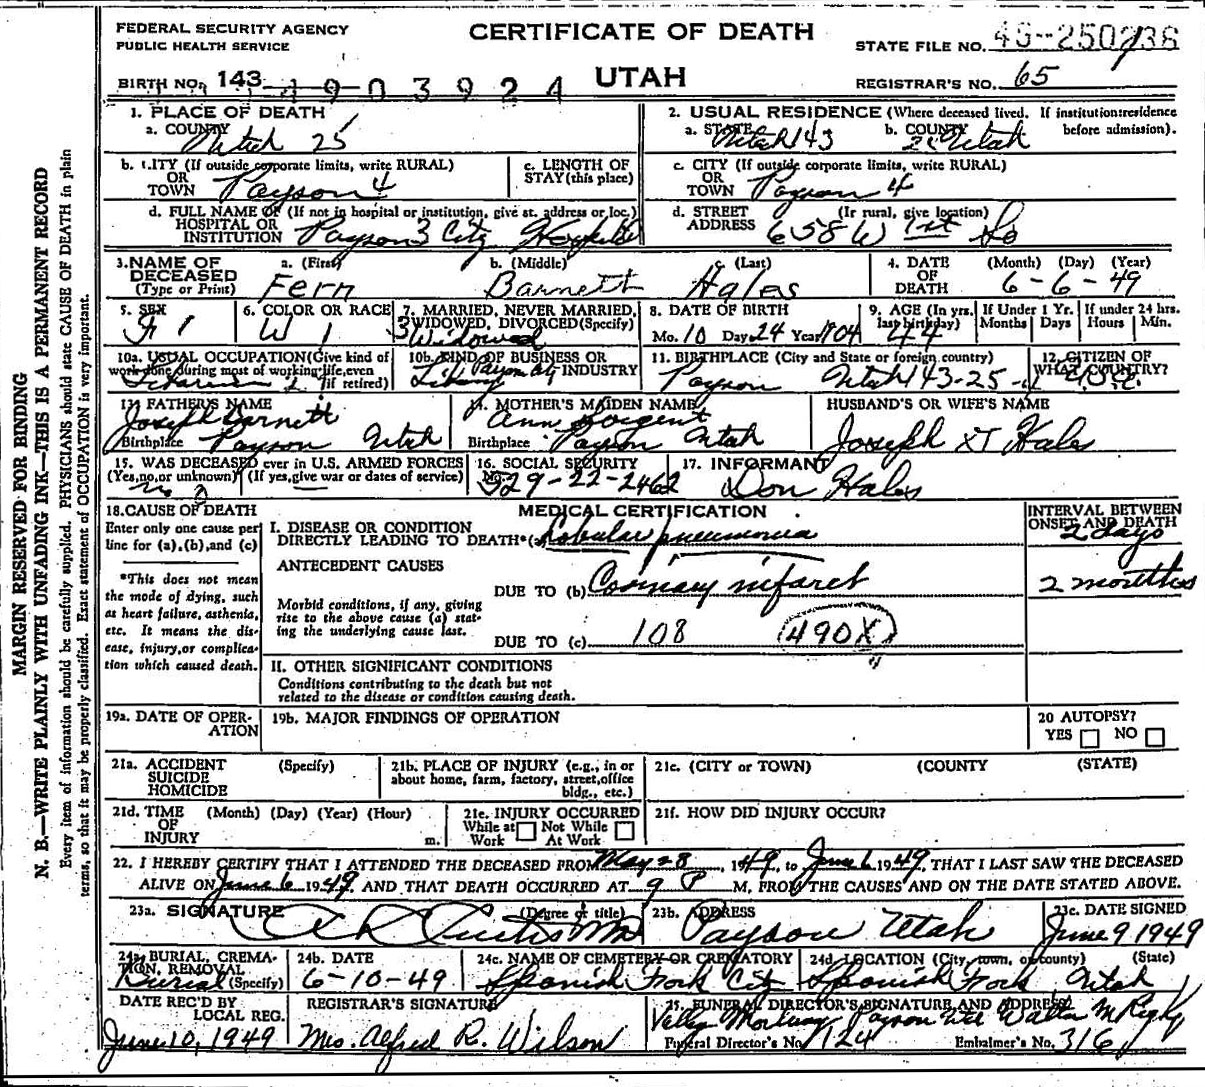 FEDERAL SECURITY AGENCY
PUBLIC HEALTH SERVICE
CERTIFICATE OF DEATH
STATE FILE NO.
BIRTH NO. 143 1903924
UTAH
REGISTRAR'S NO. 65
1. PLACE OF DEATH
a. COUNTY Utah 25
2. USUAL RESIDENCE (Where deceased lived. If institution: residence before admission).
a. STATE Utah 143 b. COUNTY Utah
b. CITY (If outside corporate limits, write RURAL) OR TOWN Payson 4
c. LENGTH OF STAY (this place)
c. CITY (If outside corporate limits, write RURAL) OR TOWN Payson 4
d. FULL NAME OF (If not in hospital or institution, give st. address or loc.) HOSPITAL OR INSTITUTION Payson 3 City Hospital
d. STREET ADDRESS (If rural, give location) 658 W 1st So
3. NAME OF DECEASED (Type or Print)
a. (First) Fern b. (Middle) Barnett c. (Last) Hales
4. DATE OF DEATH (Month) (Day) (Year) 6-6-49
5. SEX F 1
6. COLOR OR RACE W 1
7. MARRIED, NEVER MARRIED, WIDOWED, DIVORCED (Specify) 3 Widowed
8. DATE OF BIRTH Mo. 10 Day 24 Year 1904
9. AGE (In yrs. last birthday) 44 If Under 1 Yr. Months Days If under 24 hrs. Hours Min.
10a. USUAL OCCUPATION (Give kind of work done during most of working life, even if retired) Librarian
10b. KIND OF BUSINESS OR INDUSTRY Payson City Library
11. BIRTHPLACE (City and State or foreign country) Payson Utah 143-25
12. CITIZEN OF WHAT COUNTRY? U.S.A.
13. FATHER'S NAME Joseph Barnett
Birthplace Payson Utah
14. MOTHER'S MAIDEN NAME Ann Sargent
Birthplace Payson Utah
HUSBAND'S OR WIFE'S NAME
Joseph Hales
15. WAS DECEASED ever in U.S. ARMED FORCES (Yes, no, or unknown) (If yes, give war or dates of service) no
16. SOCIAL SECURITY No. 529-22-2462
17. INFORMANT Don Hales
18. CAUSE OF DEATH
Enter only one cause per line for (a), (b), and (c)
*This does not mean the mode of dying, such as heart failure, asthenia, etc. It means the disease, injury, or complication which caused death.
MEDICAL CERTIFICATION
INTERVAL BETWEEN ONSET AND DEATH
I. DISEASE OR CONDITION DIRECTLY LEADING TO DEATH* (a) Lobular pneumonia 2 days
ANTECEDENT CAUSES
DUE TO (b) Coronary infarct 2 months
Morbid conditions, if any, giving rise to the above cause (a) stating the underlying cause last.
DUE TO (c) 108 490X
II. OTHER SIGNIFICANT CONDITIONS
Conditions contributing to the death but not related to the disease or condition causing death.
19a. DATE OF OPERATION
19b. MAJOR FINDINGS OF OPERATION
20 AUTOPSY? YES NO
21a. ACCIDENT SUICIDE HOMICIDE (Specify)
21b. PLACE OF INJURY (e.g., in or about home, farm, factory, street, office bldg., etc.)
21c. (CITY or TOWN) (COUNTY) (STATE)
21d. TIME OF INJURY (Month) (Day) (Year) (Hour) m.
21e. INJURY OCCURRED While at Work Not While At Work
21f. HOW DID INJURY OCCUR?
22. I HEREBY CERTIFY THAT I ATTENDED THE DECEASED FROM May 28, 1949, to June 6 1949, THAT I LAST SAW THE DECEASED
ALIVE ON June 6 1949 AND THAT DEATH OCCURRED AT 9 P M, FROM THE CAUSES AND ON THE DATE STATED ABOVE.
23a. SIGNATURE (Degree or title) Curtis MD
23b. ADDRESS Payson Utah
23c. DATE SIGNED June 9 1949
24a. BURIAL, CREMATION, REMOVAL (Specify) Burial
24b. DATE 6-10-49
24c. NAME OF CEMETERY OR CREMATORY Spanish Fork City
24d. LOCATION (City, town, or county) (State) Spanish Fork Utah
DATE REC'D BY LOCAL REG. June 10, 1949
REGISTRAR'S SIGNATURE Mrs. Alfred R. Wilson
25. FUNERAL DIRECTOR'S SIGNATURE AND ADDRESS
Valley Mortuary Payson Utah Walter M Rigby
Funeral Director's No. 124 Embalmer's No. 316
MARGIN RESERVED FOR BINDING
N. B.—WRITE PLAINLY WITH UNFADING INK—THIS IS A PERMANENT RECORD
Every item of information should be carefully supplied. PHYSICIANS should state CAUSE OF DEATH in plain
terms, so that it may be properly classified. Exact statement of OCCUPATION is very important.